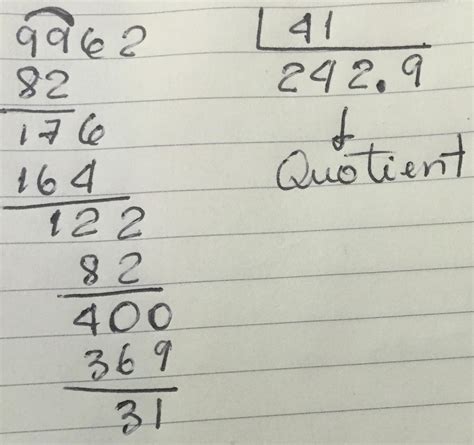 9962 41
82 242.9
176 Quotient
164
122
82
400
369
31